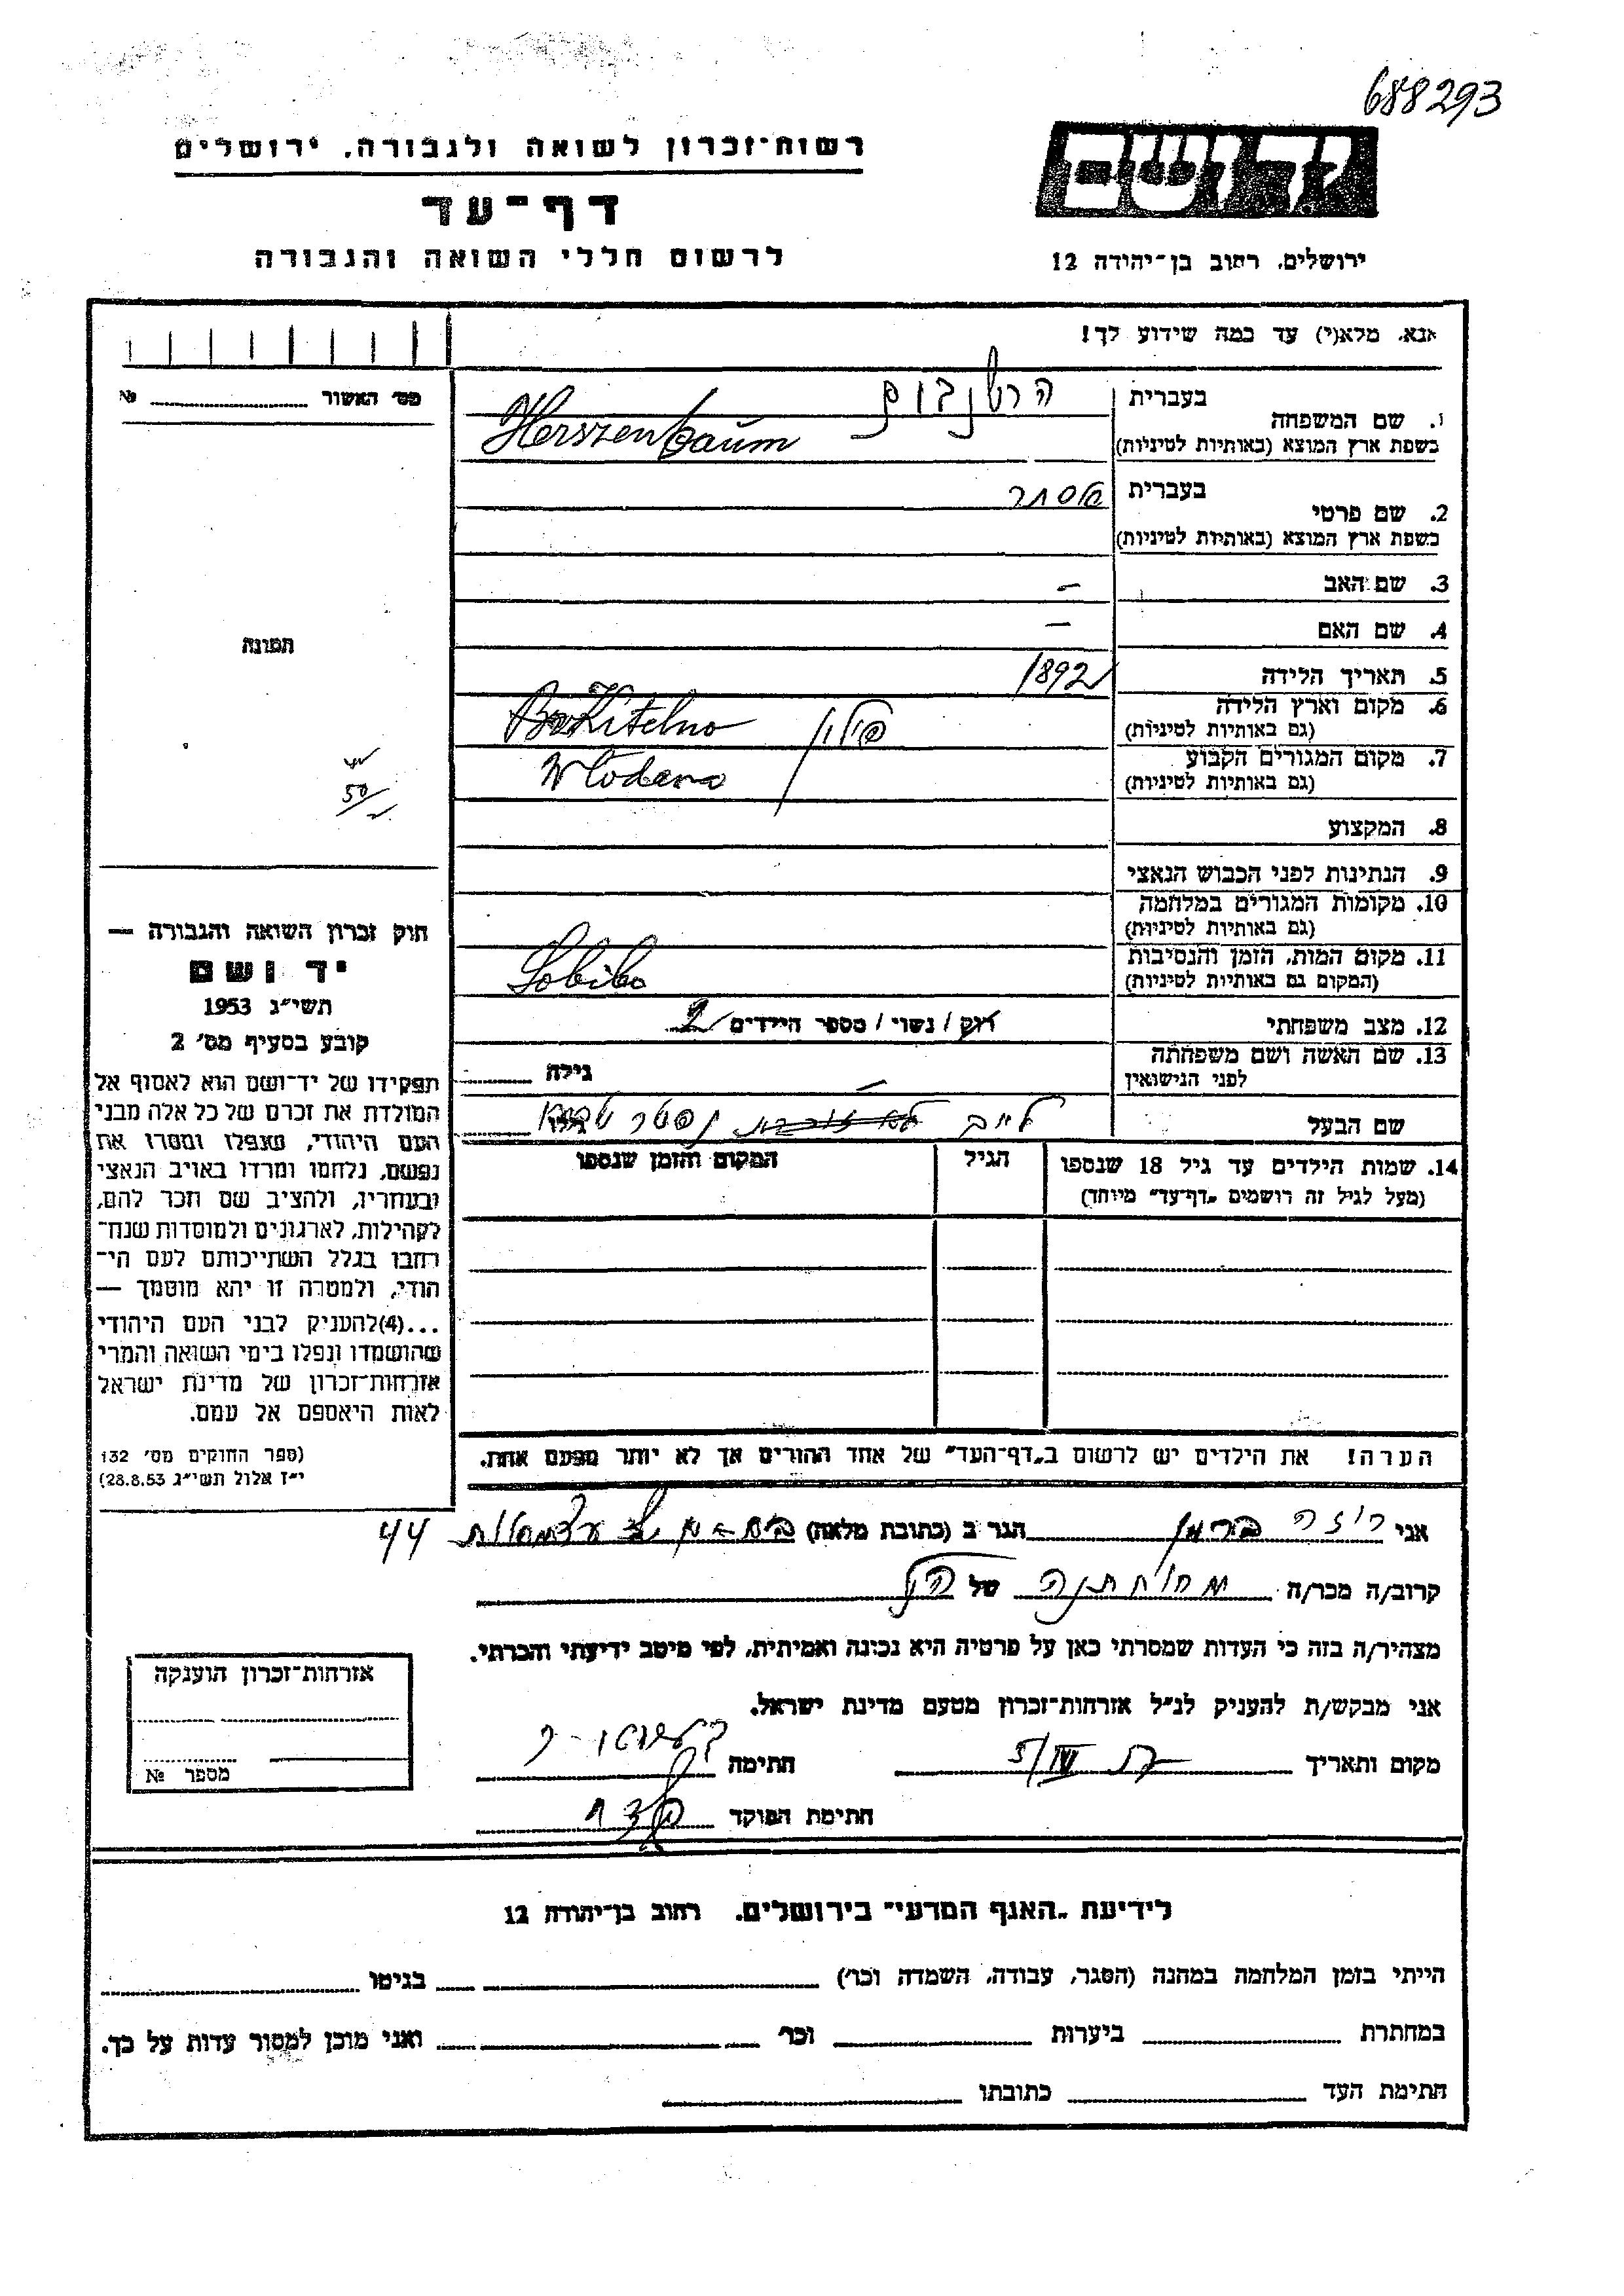 688293
ידושם
רשות־זכרון לשואה ולגבורה, ירושלים
דף־עד
לרשום חללי השואה והגבורה
ירושלים, רחוב בן־יהודה 12
אנא, מלא(י) עד כמה שידוע לך!
מס׳ האשור №
1. שם המשפחה
בעברית
הרשנבוים
בשפת ארץ המוצא (באותיות לטיניות)
Herszenbaum
2. שם פרטי
בעברית אסתר
בשפת ארץ המוצא (באותיות לטיניות)
3. שם האב –
4. שם האם –
5. תאריך הלידה 1892
6. מקום וארץ הלידה
(גם באותיות לטיניות)
פולין
7. מקום המגורים הקבוע
(גם באותיות לטיניות)
Wlodawa
8. המקצוע
9. הנתינות לפני הכבוש הנאצי
10. מקומות המגורים במלחמה
(גם באותיות לטיניות)
11. מקום המות, הזמן והנסיבות
(המקום גם באותיות לטיניות)
Sobibo
12. מצב משפחתי
רווק / נשוי / מספר הילדים 2
13. שם האשה ושם משפחתה
לפני הנישואין
גילה
שם הבעל לייב
14. שמות הילדים עד גיל 18 שנספו
(מעל לגיל זה רושמים „דף־עד” מיוחד)
הגיל
המקום והזמן שנספו
הערה! את הילדים יש לרשום ב„דף־העד” של אחד ההורים אך לא יותר מפעם אחת.
תמונה
50
חוק זכרון השואה והגבורה —
יד ושם
תשי״ג 1953
קובע בסעיף מס׳ 2
תפקידו של יד־ושם הוא לאסוף אל
המולדת את זכרם של כל אלה מבני
העם היהודי, שנפלו ומסרו את
נפשם, נלחמו ומרדו באויב הנאצי
ובעוזריו, ולהציב שם וזכר להם,
לקהילות, לארגונים ולמוסדות שנח־
רבו בגלל השתייכותם לעם הי־
הודי, ולמטרה זו יהא מוסמך —
...(4)להעניק לבני העם היהודי
שהושמדו ונפלו בימי השואה והמרי
אזרחות־זכרון של מדינת ישראל
לאות היאספם אל עמם.
(ספר החוקים מס׳ 132
י״ז אלול תשי״ג 28.8.53)
אני רוזה ברמן הגר ב (כתובת מלאה) עצמאות 44
קרוב/ה מכר/ה מחותנה של הנ״ל
מצהיר/ה בזה כי העדות שמסרתי כאן על פרטיה היא נכונה ואמיתית, לפי מיטב ידיעתי והכרתי.
אני מבקש/ת להעניק לנ״ל אזרחות־זכרון מטעם מדינת ישראל.
מקום ותאריך חתימה
חתימת הפוקד
אזרחות־זכרון הוענקה
מספר №
לידיעת „האגף המדעי” בירושלים, רחוב בן־יהודה 12
הייתי בזמן המלחמה במחנה (הסגר, עבודה, השמדה וכו׳) בגיטו
במחתרת ביערות וכו׳ ואני מוכן למסור עדות על כך.
חתימת העד כתובתו